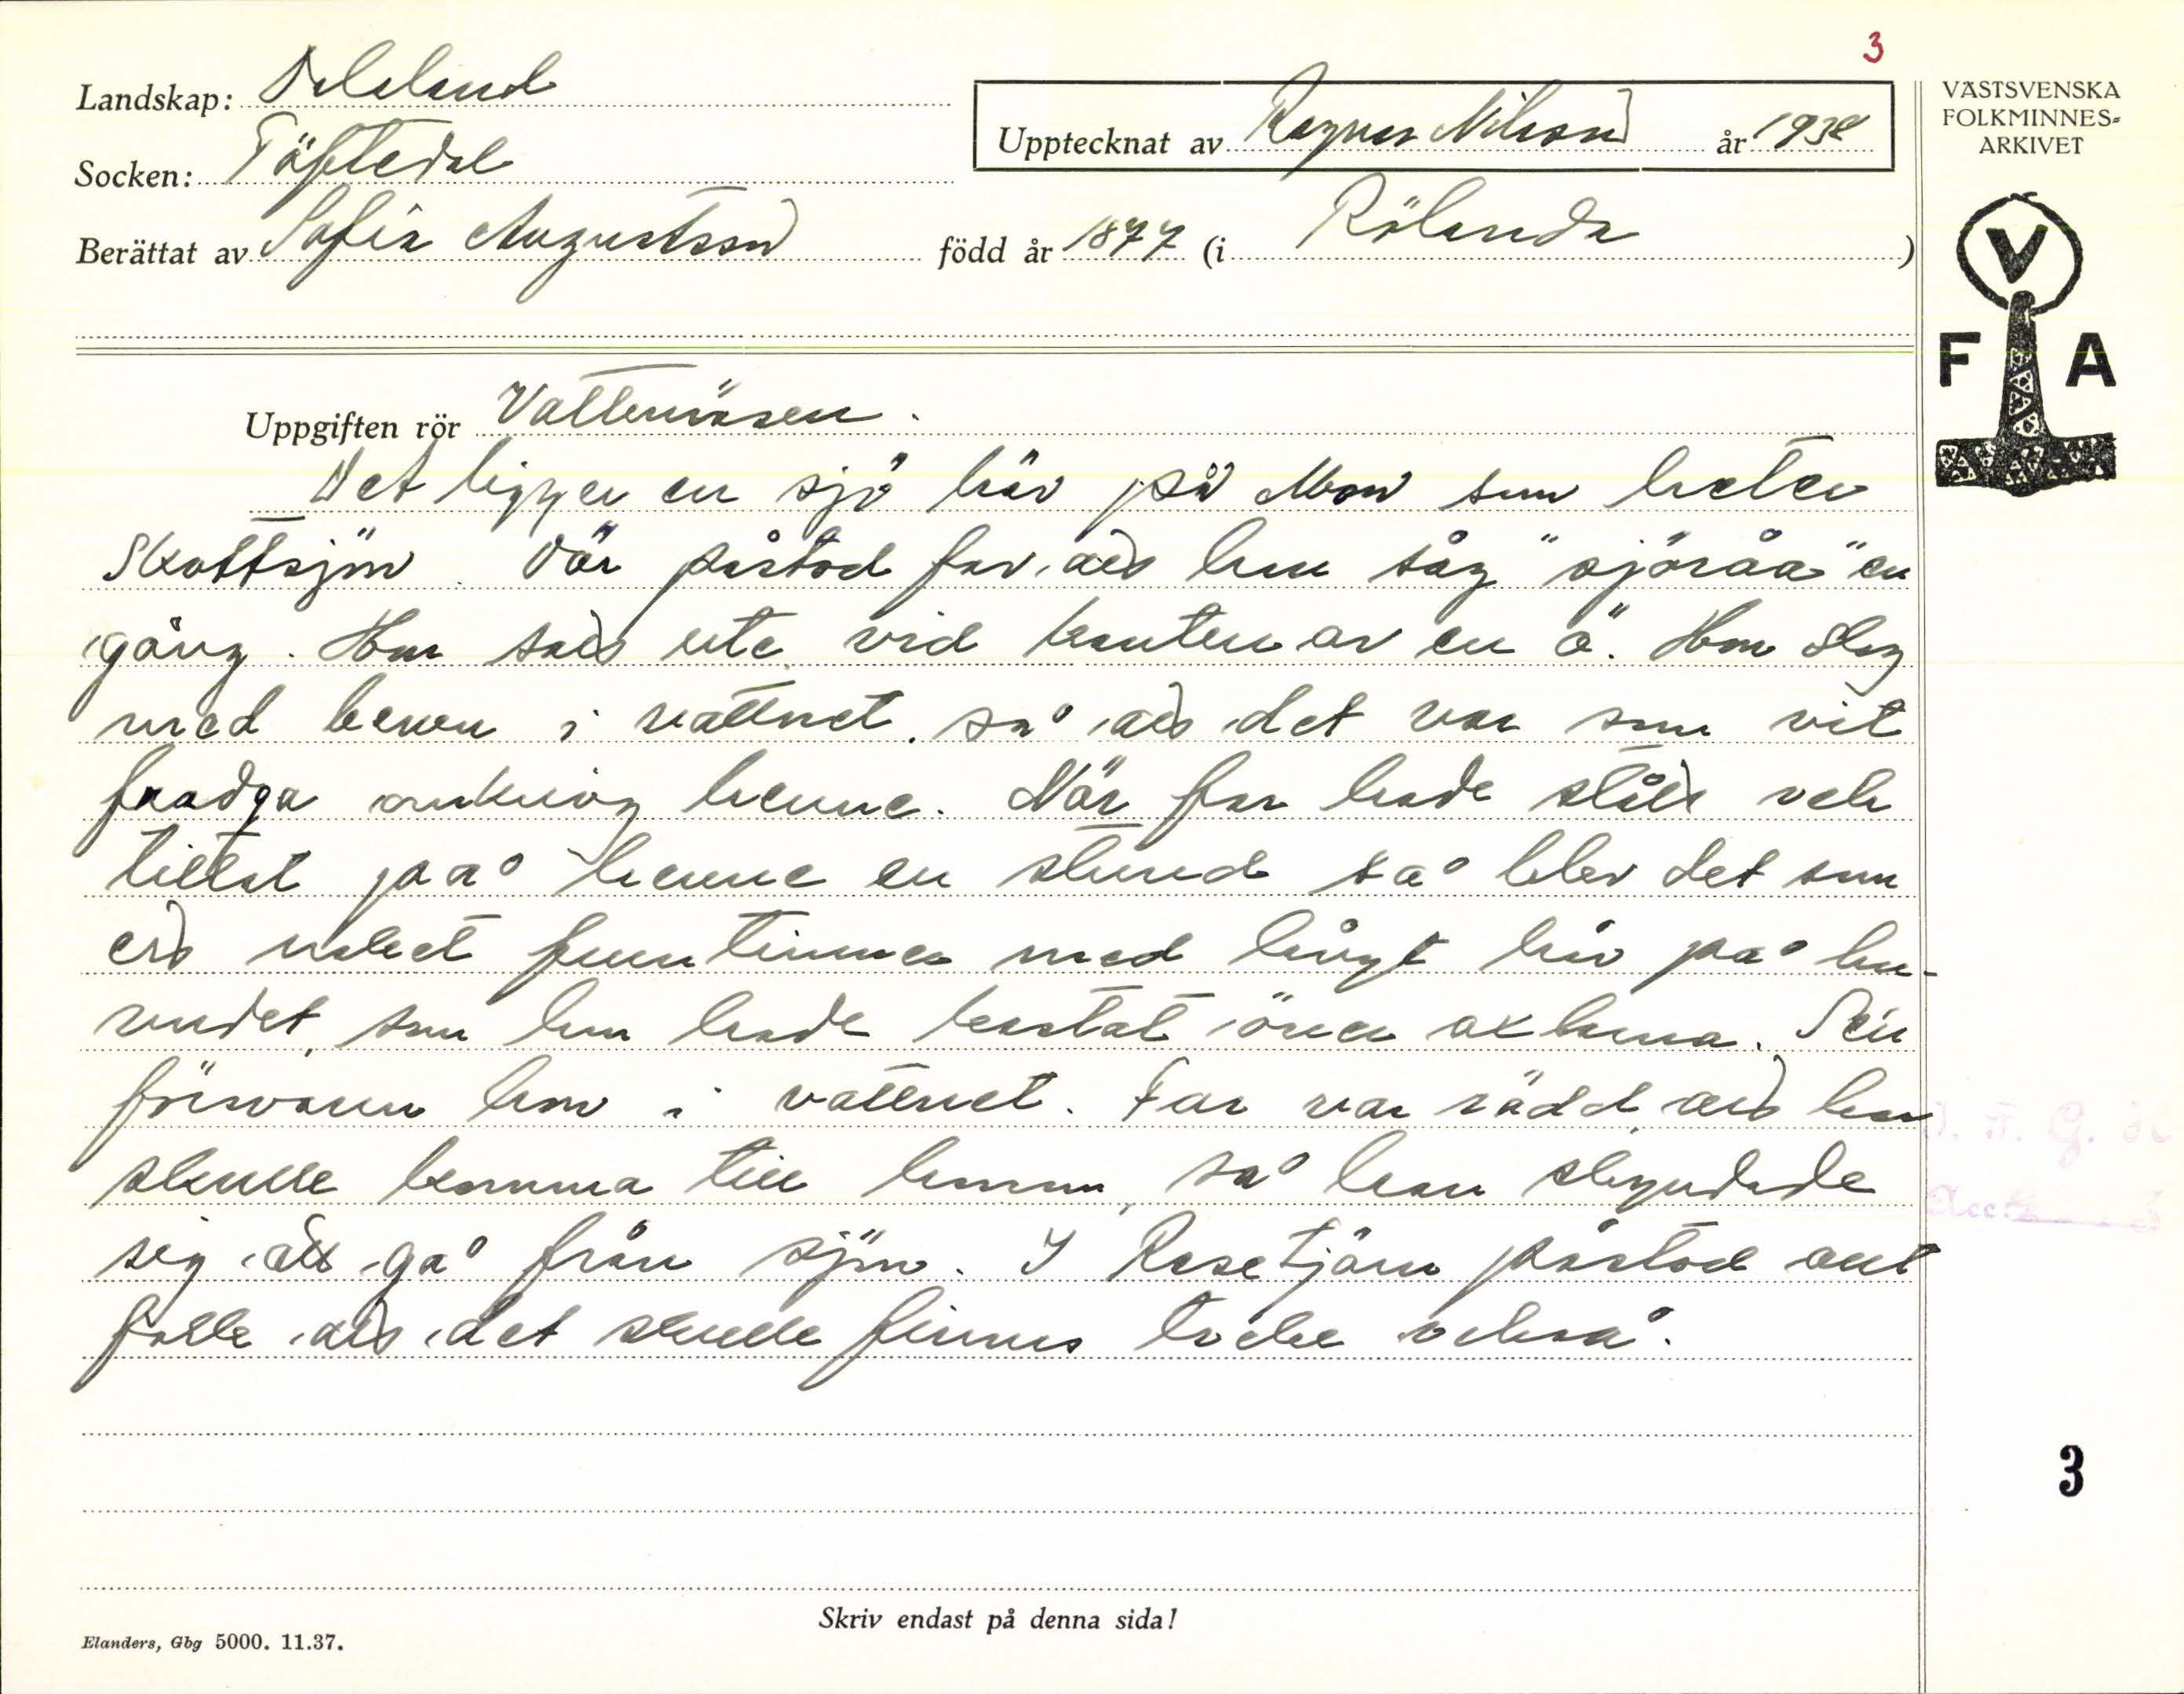 3
Landskap: Dalsland
Upptecknat av Ragnar Nilsson år 1938
VÄSTSVENSKA
FOLKMINNES-
ARKIVET
Socken: Töftedal
Berättat av Sofia Augustsson född år 1877 (i Rölanda)
V
F A
Uppgiften rör Vattenväsen.
Det ligger en sjö här på Mon som heter
Skottsjön. Där påstod far att han såg "sjöråa" en
gång. Hon satt ute vid kanten av en ö. Hon slog
med benen i vattnet. så att det var som vit
fradga omkring henne. När far hade stått och
tittat på henne en stund så blev det som
ett naket fruntimmer med långt hår på hu-
vudet, som hon hade kastat över axlarna. Sen
försvann hon i vattnet. Far var rädd att hon
skulle komma till honom, så han skyndade
sig att gå från sjön. I Rosetjärn påstod ant
folk att det skulle finnas tocke också.
3
Skriv endast på denna sida!
Elanders, Gbg 5000. 11.37.